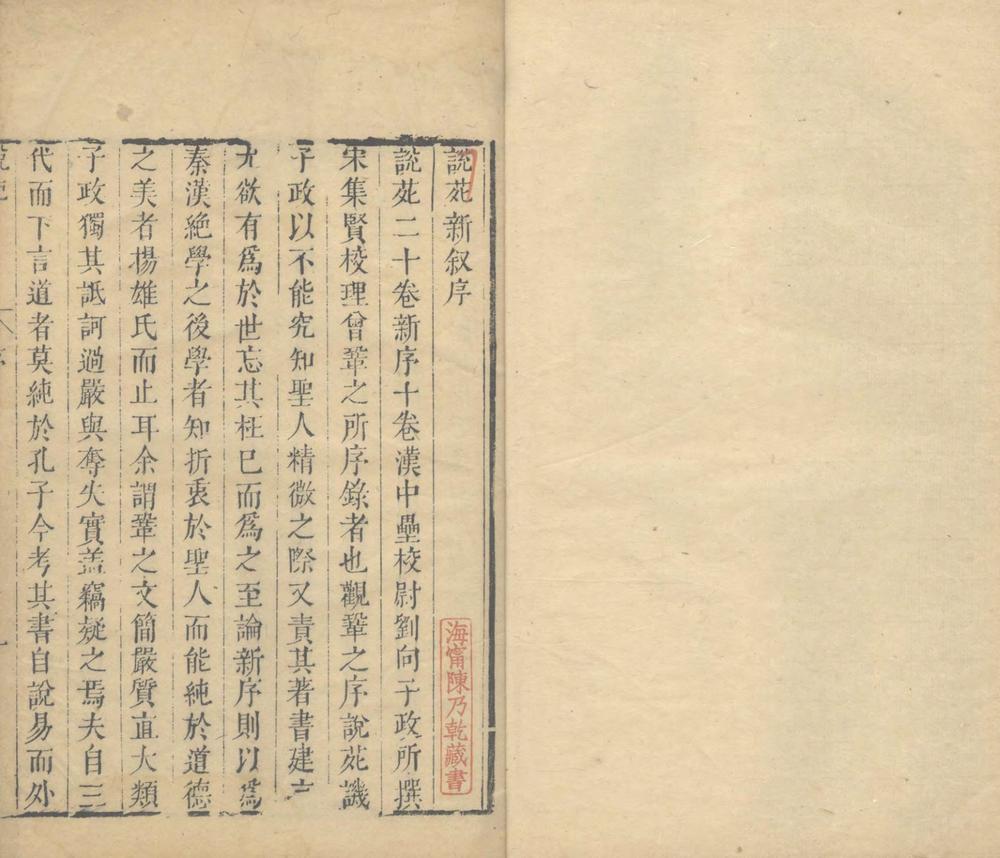 說苑新叙序
海甯陳乃乾藏書
說苑二十卷新序十卷漢中壘校尉劉向子政所撰
宋集賢校理曾鞏之所序錄者也觀鞏之序說苑譏
子政以不能究知聖人精微之際又責其著書建言
尤欲有爲於世忘其枉已而爲之至論新序則以爲
秦漢絶學之後學者知折衷於聖人而能純於道德
之美者楊雄氏而止耳余謂鞏之文簡嚴質直大類
子政獨其詆訶過嚴與奪失實葢竊疑之焉夫自三
代而下言道者莫純於孔子今考其書自說易而外